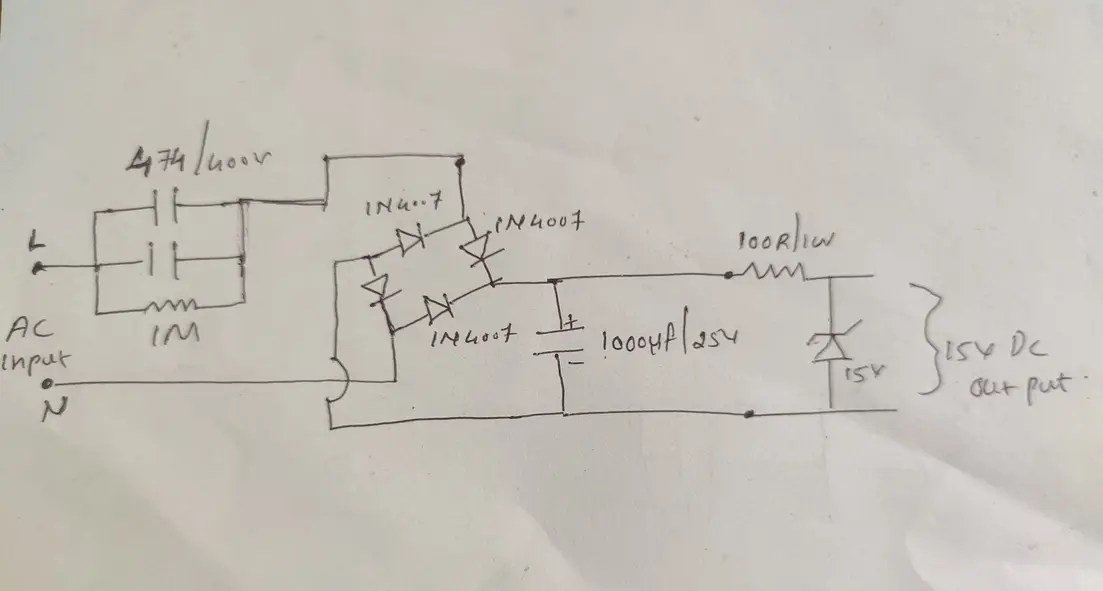 474/400V
1N4007
1N4007
L
100R/1W
AC
input
1M
1N4007
+
1000μf/25V
-
15V
15V DC
output.
N